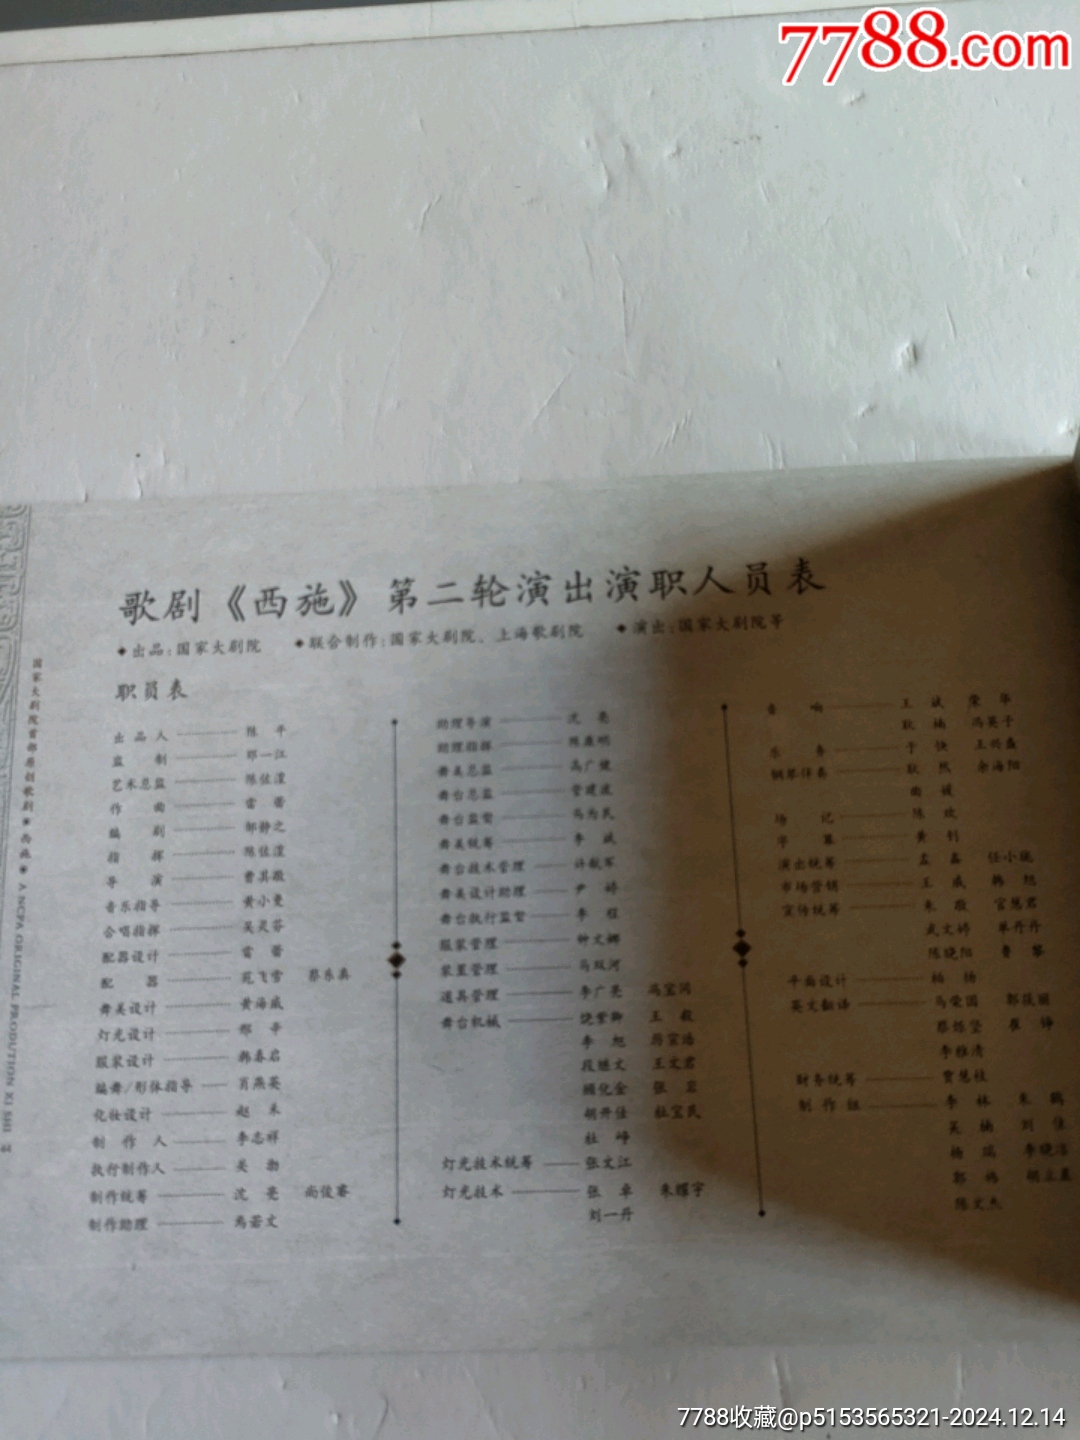 7788.com
歌剧《西施》第二轮演出演职人员表
◆出品:国家大剧院 ◆联合制作:国家大剧院、上海歌剧院 ◆演出:国家大剧院等
职员表
出品人 —— 陈平
监制 —— 邓一江
艺术总监 —— 陈佐湟
作曲 —— 雷蕾
编剧 —— 邹静之
指挥 —— 陈佐湟
导演 —— 曹其敬
音乐指导 —— 黄小曼
合唱指挥 —— 吴灵芬
配器设计 —— 雷蕾
配器 —— 苑飞雪 蔡东真
舞美设计 —— 黄海威
灯光设计 —— 邢辛
服装设计 —— 韩春启
编舞/形体指导 —— 肖燕英
化妆设计 —— 赵禾
制作人 —— 李志祥
执行制作人 —— 关渤
制作统筹 —— 沈亮 尚俊睿
制作助理 —— 马若文
助理导演 —— 沈亮
助理指挥
舞美总监 —— 高广健
舞台总监 —— 管建波
舞台监督 —— 马为民
舞美统筹 —— 李诚
舞台技术管理 —— 许献军
舞美设计助理 —— 尹婷
舞台执行监督 —— 李程
服装管理 —— 钟文娜
装置管理 —— 马双河
道具管理 —— 李广亮
舞台机械 —— 饶紫卿 王毅
李旭
段继文 王文君
顾化金 张岩
胡开仕 杜宝民
杜峰
灯光技术统筹 —— 张文江
灯光技术 —— 张卓 朱耀宇
刘一丹
音响 —— 王斌 荣华
耿楠 冯英子
乐务 —— 于快 王兴盛
钢琴伴奏 —— 耿然 余海阳
曲媛
场记 —— 陈欢
字幕 —— 黄钊
演出统筹 —— 孟鑫 任小珑
市场营销 —— 王威 韩旭
宣传统筹 —— 朱敬 官慧君
武文婷 单丹丹
陈晓阳 鲁黎
平面设计 —— 杨扬
英文翻译 —— 马荣国 郭筱丽
崔铮
李雅清
财务统筹 —— 贾慧枝
制作组 —— 李林 朱鹤
吴楠 刘佳
杨瑞 李晓洁
郭杨
陈文杰
国家大剧院首部原创歌剧◆西施◆A NCPA ORIGINAL PRODUTION XI SHI
7788收藏@p5153565321-2024.12.14